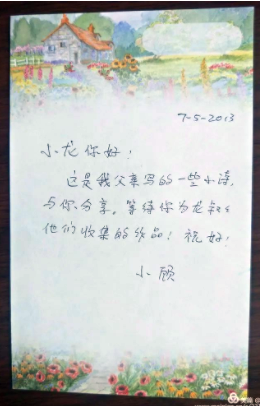 7-5-2013
小龙你好！
这是我父亲写的一些小诗，
与你分享。等待你为龙叔
他们收集的作品！祝好！
小顾